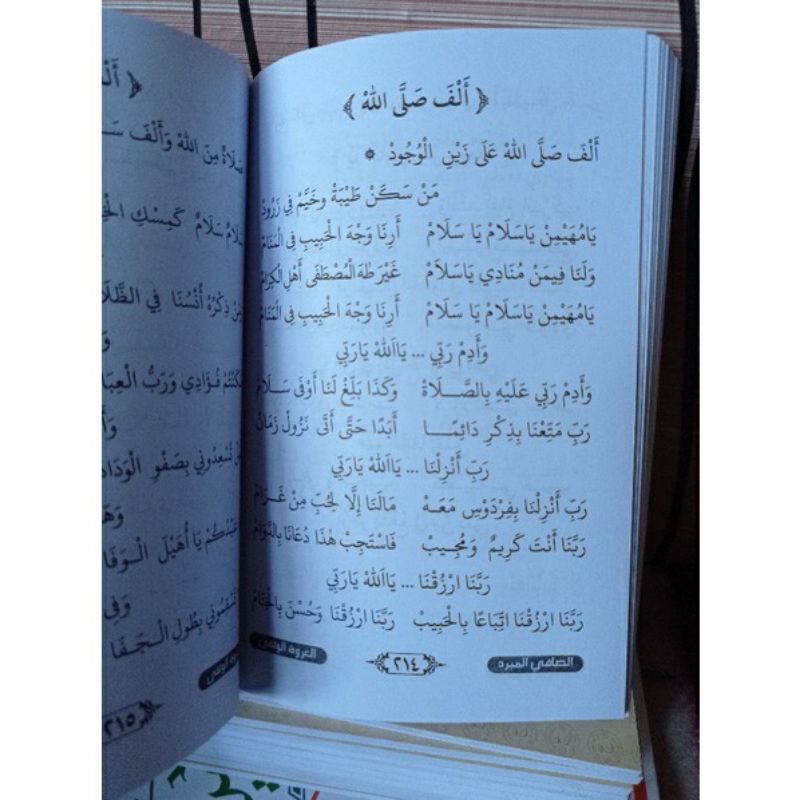 ﴿ أَلْفَ صَلَّى اللهْ ﴾
أَلْفَ صَلَّى اللهْ عَلَى زَيْنِ الْوُجُودْ *
مَنْ سَكَنْ طَيْبَةْ وخَيَّمْ فِي زَرُودْ
يَامُهَيْمِنْ يَاسَلَامْ يَا سَلَامْ أَرِنَا وَجْهَ الْحَبِيبِ فِى الْمَنَامْ
وَلَنَا فِيمَنْ مُنَادِي يَاسَلَامْ غَيْرَ طهَ الْمُصْطَفَى أَهْلِ الْكِرَامْ
يَامُهَيْمِنْ يَاسَلَامْ يَا سَلَامْ أَرِنَا وَجْهَ الْحَبِيبِ فِى الْمَنَامْ
وَأَدِمْ رَبِّي ... يَااَللهْ يَارَبِّي
وَأَدِمْ رَبِّي عَلَيْهِ بِالصَّلَاةْ وَكَذَا بَلِّغْ لَنَا أَوْفَى سَلَامْ
رَبِّ مَتِّعْنَا بِذِكْرٍ دَائِمًا أَبَدًا حَتَّى أَتَى نَزُولْ زَمَانْ
رَبِّ أَنْزِلْنَا ... يَااَللهْ يَارَبِّي
رَبِّ أَنْزِلْنَا بِفِرْدَوْسِ مَعَهْ مَالَنَا إِلَّا لِحُبِّ مِنْ غَرَامْ
رَبَّنَا أَنْتَ كَرِيمٌ وَمُجِيبْ فَاسْتَجِبْ هٰذَا دُعَانَا بِالدَّوَامْ
رَبَّنَا ارْزُقْنَا ... يَااَللهْ يَارَبِّي
رَبَّنَا ارْزُقْنَا اتِّبَاعًا بِالْحَبِيبْ رَبَّنَا ارْزُقْنَا وَحُسْنَ بِالْخِتَامْ
الصافي المبرد ٢١٤ العروة الوثقى
صَلَاةْ مِنَ اللهْ وَأَلْفَ
سَلَامْ سَلَامْ كَمِسْكِ
ذِكْرُهُ أُنْسُنَا فِي
فُؤَادِي وَرَبُّ
تُسْعِدُونِي بِصَفْوِ
عَبْدُكُمْ يَا أُهَيْلَ الْوَفَا
وَفِي
بِطُولِ الْجَفَا
٢١٥